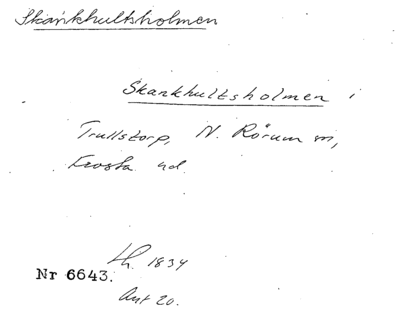 Skankhultholmen
Skankhultsholmen i
Trullstorp, N. Rörum sn,
Frosta hd.
Lh. 1834
Nr 6643.
Ant 20.